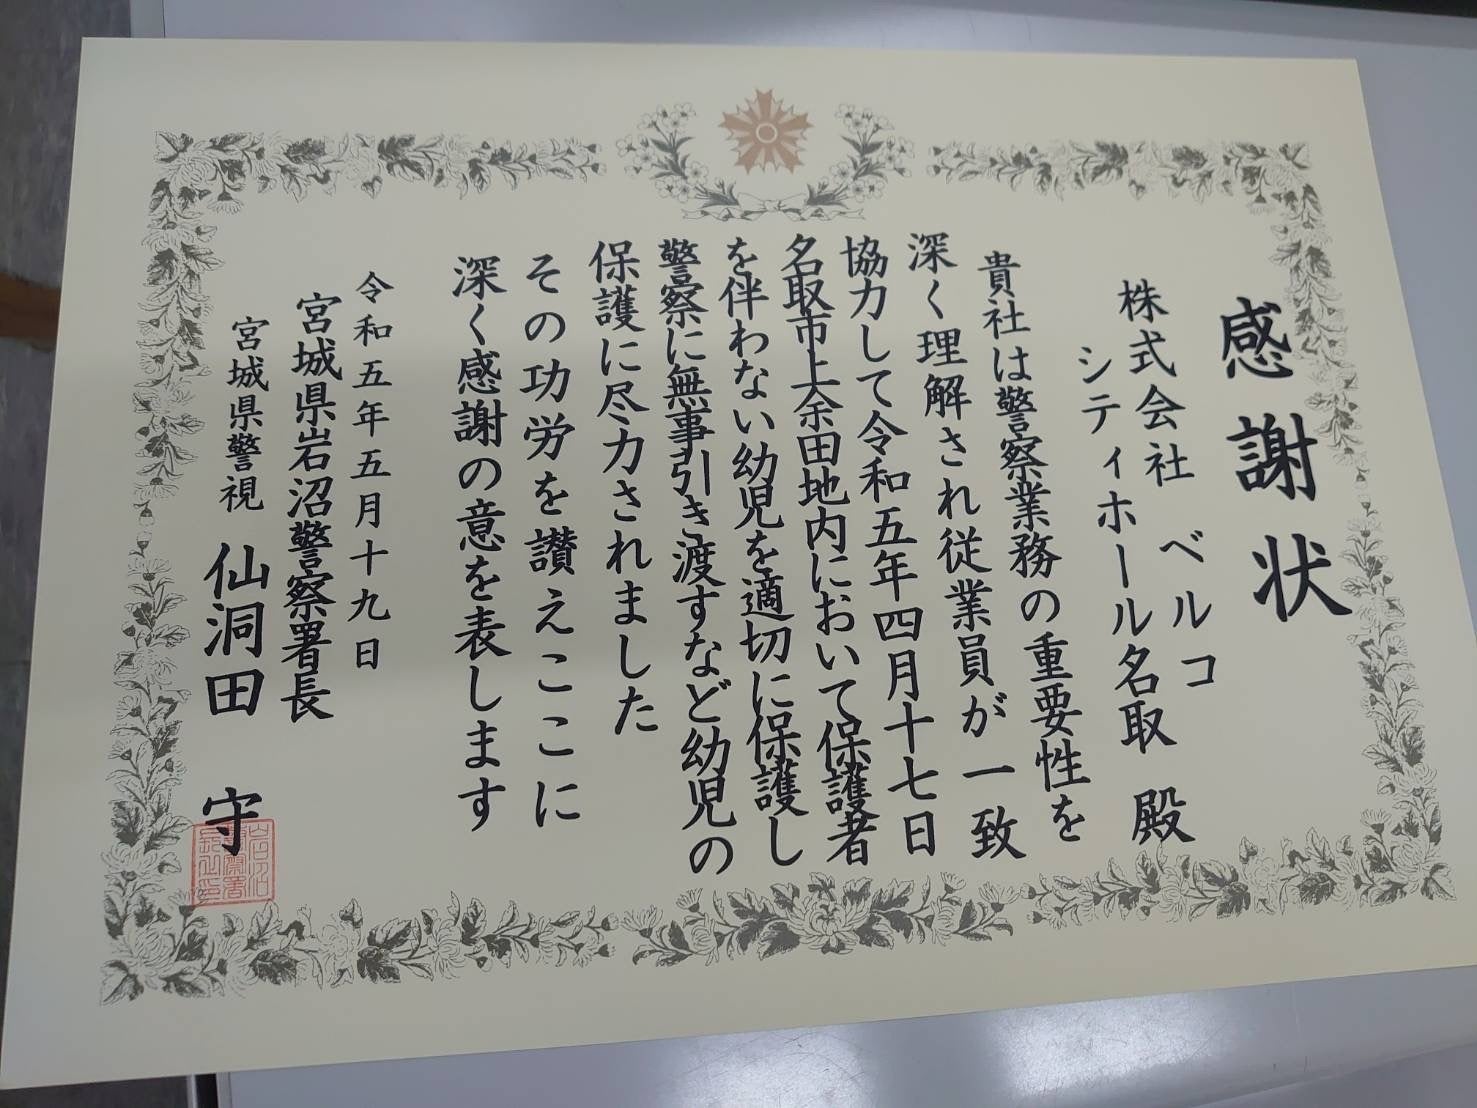 感謝状
株式会社 ベルコ
シティホール名取 殿
貴社は警察業務の重要性を
深く理解され従業員が一致
協力して令和五年四月十七日
名取市上余田地内において保護者
を伴わない幼児を適切に保護し
警察に無事引き渡すなど幼児の
保護に尽力されました
その功労を讃えここに
深く感謝の意を表します
令和五年五月十九日
宮城県岩沼警察署長
宮城県警視 仙洞田 守
岩沼警察署長之印